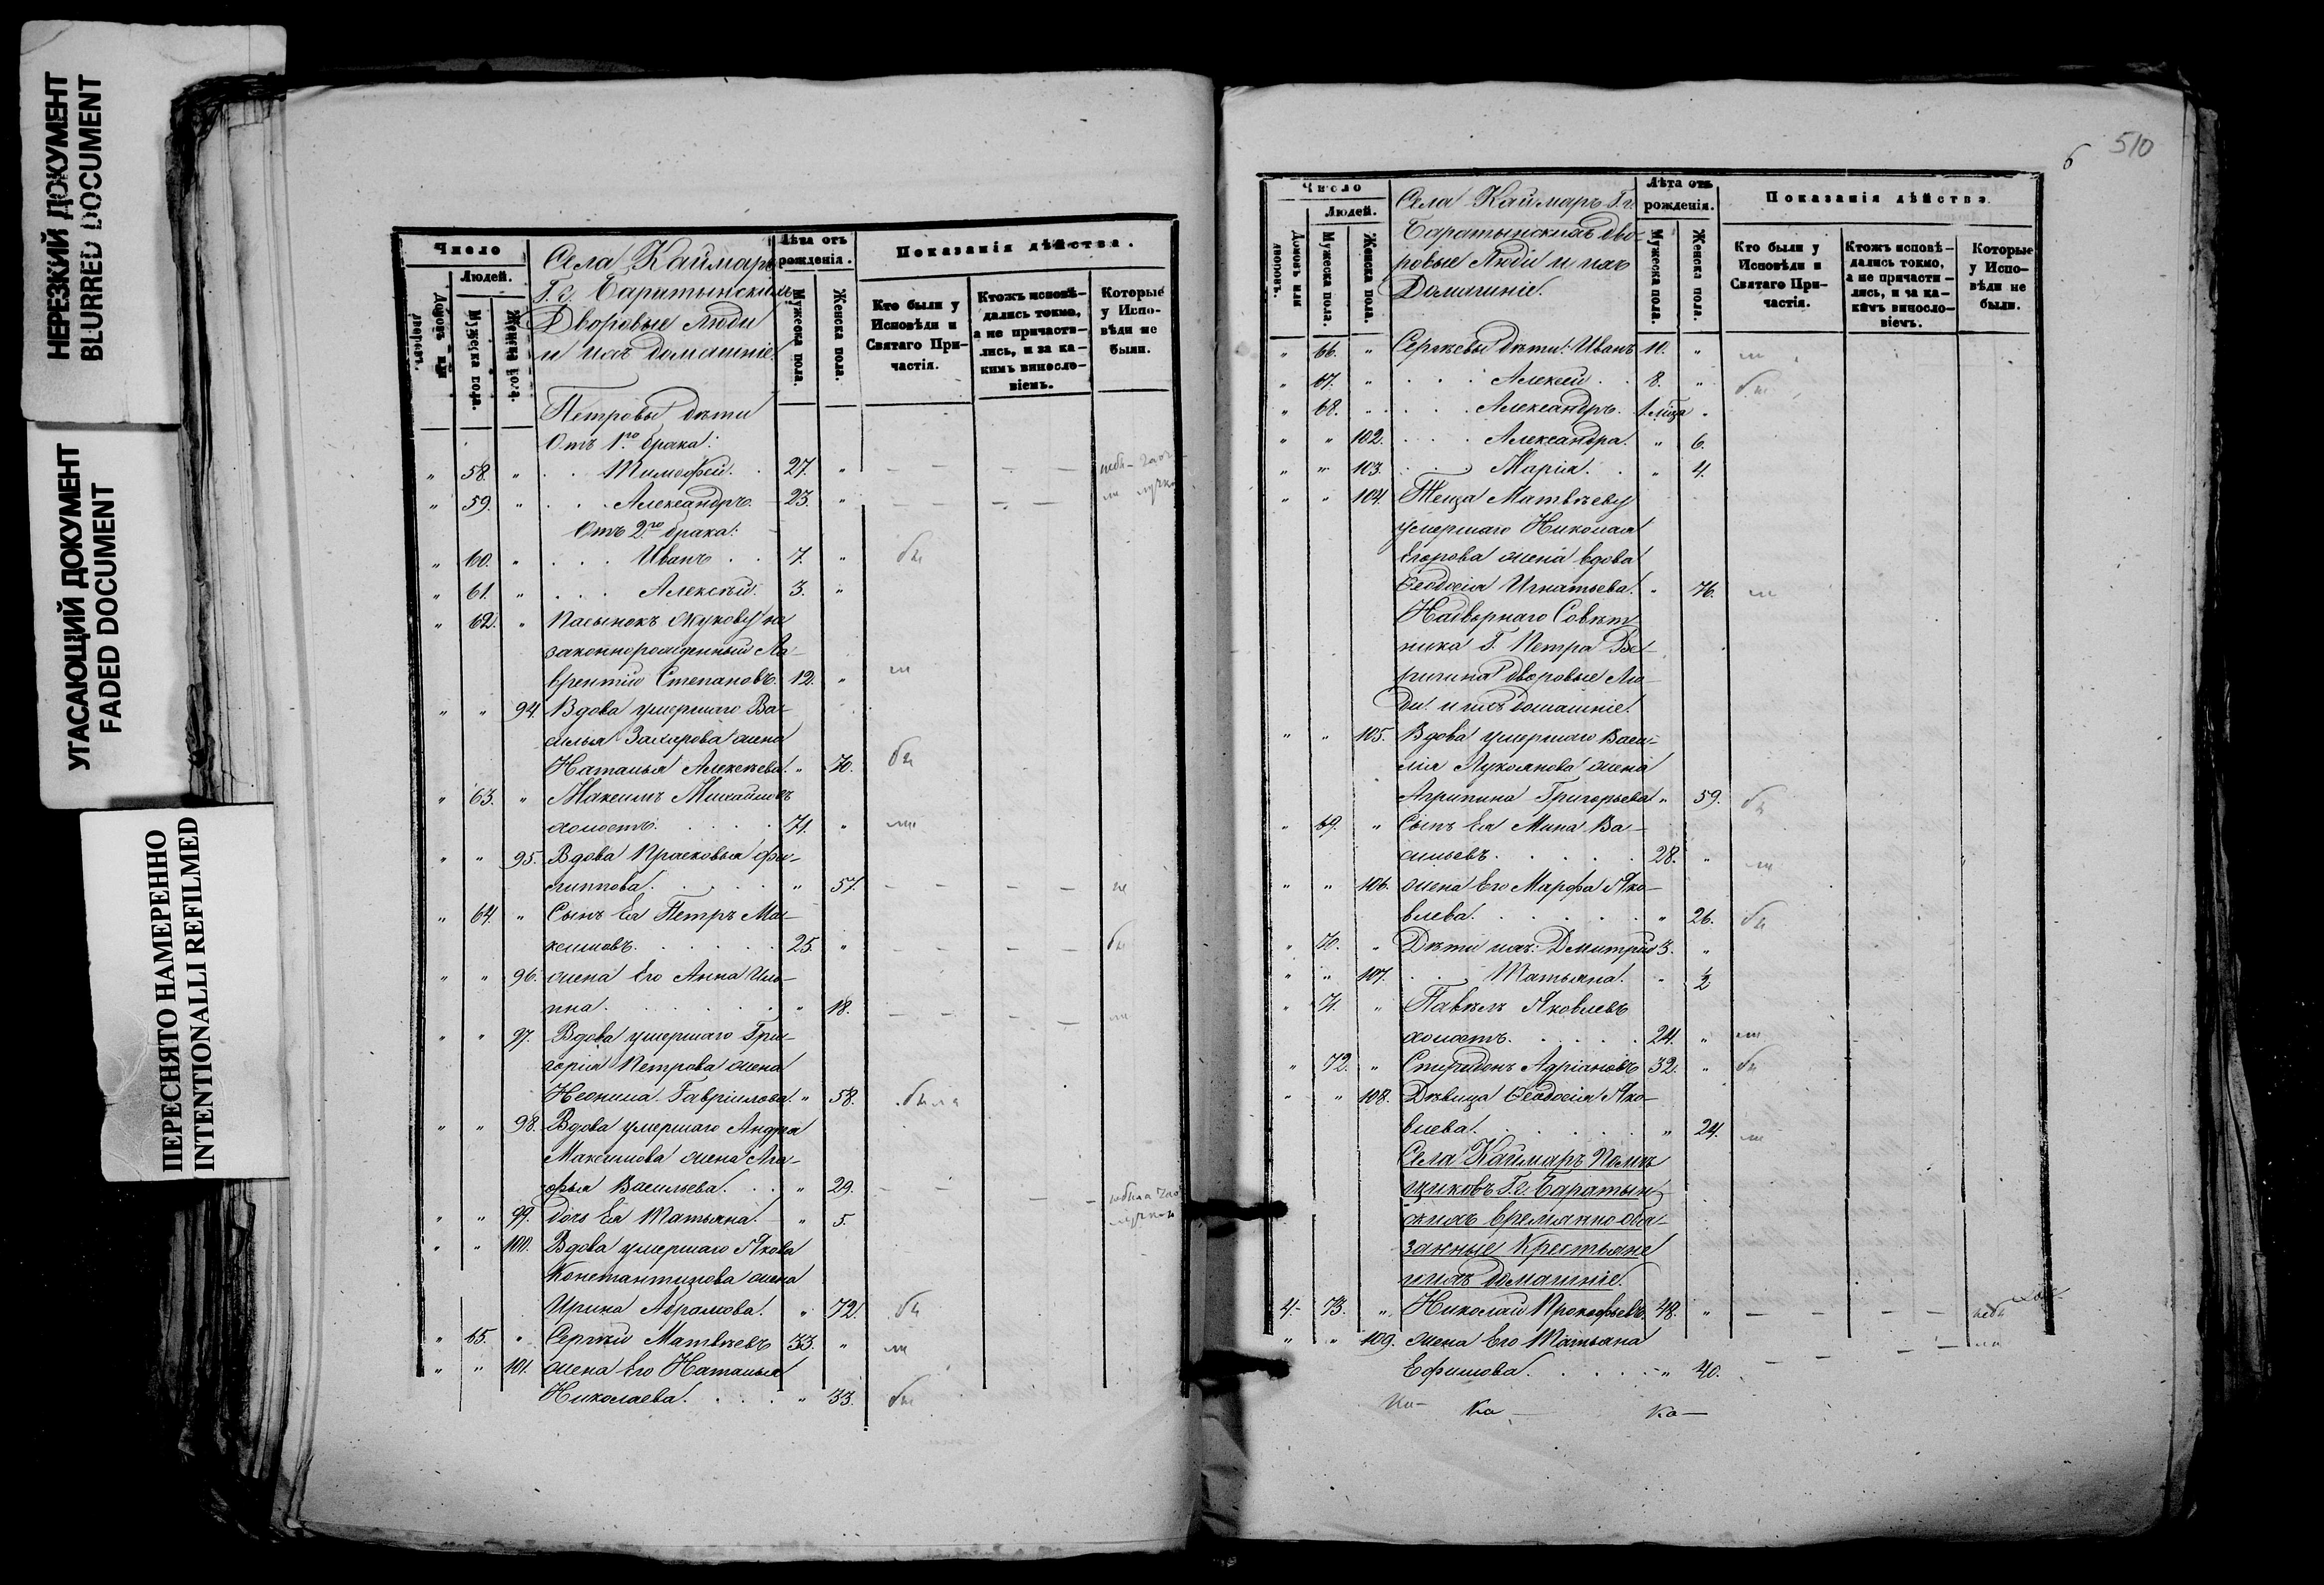 НЕРЕЗКИЙ ДОКУМЕНТ
BLURRED DOCUMENT
УГАСАЮЩИЙ ДОКУМЕНТ
FADED DOCUMENT
ПЕРЕСНЯТО НАМЕРЕННО
INTENTIONALLI REFILMED
Число
Людей.
Домовъ или дворовъ.
Мужеска пола.
Женска пола.
Села Каймаръ
Г. г. Баратынскихъ
Дворовые люди
и ихъ домашніе.
Лѣта отъ рожденія.
Мужеска пола.
Женска пола.
Показанія дѣйства.
Кто были у Исповѣди и Святаго Причастія.
Ктожъ исповѣдались токмо, а не причастились, и за какимъ винословіемъ.
Которые у Исповѣди не были.
Петровы дѣти
Отъ 1го брака:
" 58. " . . Тимофей. . 27. "
" 59. " . . Александръ. 23. "
Отъ 2го брака:
" 60. " . . . Иванъ . . 7. " бы
" 61. " . . . Алексѣй. 3. "
" 62. " Пасынокъ Жукову не
законнорожденный Ла-
врентій Степановъ. 12. " ли
" " 94. Вдова умершаго Ва-
силья Захарова жена
Наталья Алексѣева. " 70. бы
" 63. " Максимъ Михайловъ
холостъ. . . . . 71. " ли
" " 95. Вдова Прасковья Фи-
липпова. . . . . " 57. не
" 64. " Сынъ Ея Петръ Ма-
ксимовъ. . . . . . 25. " бы
" " 96. жена Его Анна Иль-
ина. . . . . . . " 18. ли
" " 97. Вдова умершаго Гри-
горія Петрова жена
Неонила Гавріилова. " 58. была
" " 98. Вдова умершаго Андрея
Максимова жена Ага-
фья Васильева. . . " 29.
" " 99. дочь Ея Татьяна. " 5.
" " 100. Вдова умершаго Якова
Константинова жена
Ирина Абрамова. " 72. бы
" 65. " Сергѣй Матвѣевъ 33. " ли
" " 101. жена Его Наталья
Николаева. . . . " 33. бы
6 510
Число
Людей.
Домовъ или дворовъ.
Мужеска пола.
Женска пола.
Села Каймаръ Г. г.
Баратынскихъ дво-
ровые люди и ихъ
Домашніе.
Лѣта отъ рожденія.
Мужеска пола.
Женска пола.
Показанія дѣйства.
Кто были у Исповѣди и Святаго Причастія.
Ктожъ исповѣдались токмо, а не причастились, и за какимъ винословіемъ.
Которые у Исповѣди не были.
" 66. " Сергѣевы дѣти: Иванъ 10. " ли
" 67. " . . . Алексѣй . . 8. " бы
" 68. " . . . Александръ. 1.
" " 102. . . . Александра. " 6.
" " 103. . . . Марія. . " 4.
" " 104. Теща Матвѣеву
умершаго Николая
Егорова жена вдова
Ѳеодосія Игнатьева. " 76. ли
Надворнаго Совѣт-
ника Г. Петра Ве-
ригина дворовые Лю-
ди и ихъ домашніе.
" " 105. Вдова умершаго Васи-
лія Лукоянова жена
Агрипина Григорьева " 59. бы
" 69. " Сынъ Ея Мина Ва-
сильевъ. . . . . . 28. " ли
" " 106. жена Его Марфа Яко-
влева. . . . . . " 26. бы
" 70. " Дѣти ихъ: Дмитрій 3. "
" " 107. . . Татьяна. " 1/2
" 71. " Павелъ Яковлевъ
холостъ. . . . . . 24. " ли
" 72. " Спиридонъ Адріановъ 32. " бы
" " 108. Дѣвица Ѳеодосія Яко-
влева. . . . . . " 24. ли
Села Каймаръ Помѣ-
щиковъ Г. г. Баратын-
скихъ временно-обя-
занные Крестьяне
и ихъ домашніе.
4. 73. " Николай Прокофьевъ. 48. "
" " 109. жена Его Татьяна
Ефимова. . . . . " 40. ли
Ка- Ка-